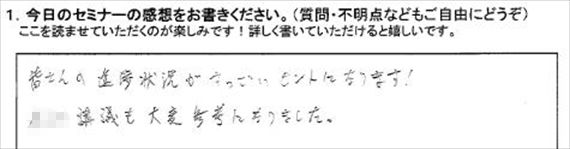 1. 今日のセミナーの感想をお書きください。（質問・不明点などもご自由にどうぞ）
ここを読ませていただくのが楽しみです！詳しく書いていただけると嬉しいです。
皆さんの進捗状況がすっごいヒントになります！
講議も大変参考になりました。